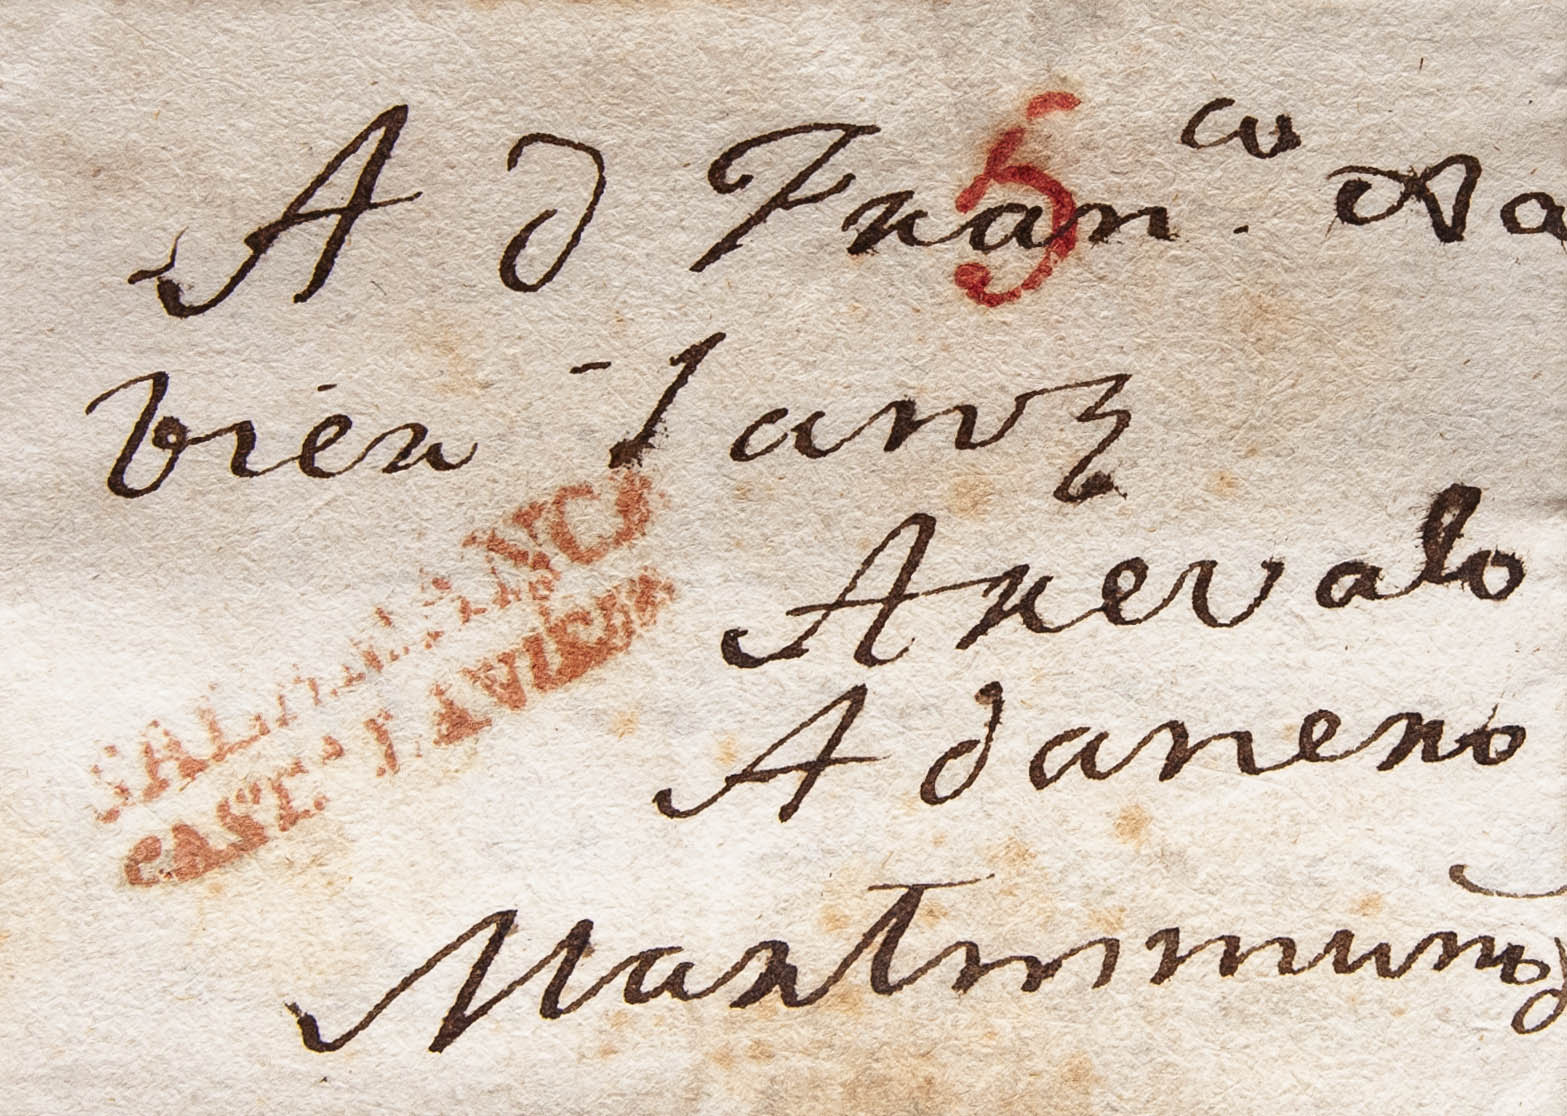 A d Fran.co Xa
bier Sanz
Arevalo
Adanero
Martinmunoz
5
SALAMANCA
CAST. LA VIEJA